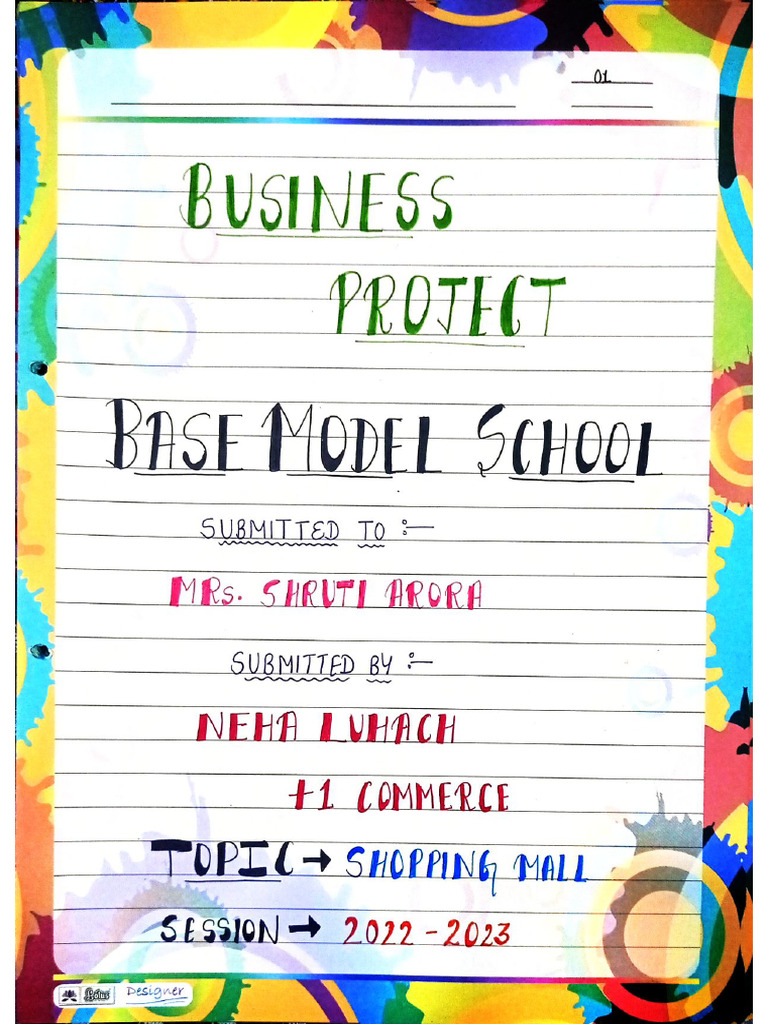 01
BUSINESS
PROJECT
BASE MODEL SCHOOL
SUBMITTED TO :-
MRS. SHRUTI ARORA
SUBMITTED BY :-
NEHA LUHACH
+1 COMMERCE
TOPIC → SHOPPING MALL
SESSION → 2022-2023
Lotus Designer